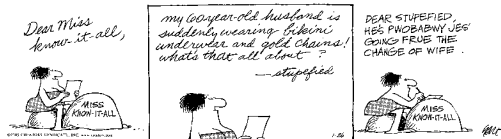 Dear Miss
know-it-all,
MISS
KNOW-IT-ALL
my 60-year-old husband is
suddenly wearing bikini
underwear and gold chains!
whats that all about ?
—stupefied
1-26
DEAR STUPEFIED,
HE'S PWOBABWY JES'
GOING FRUE THE
CHANGE OF WIFE.
MISS
KNOW-IT-ALL